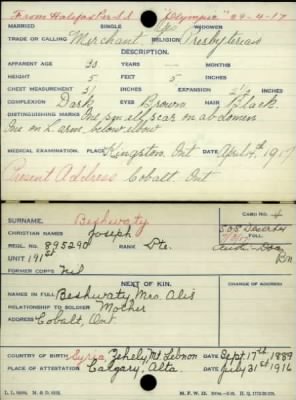 From Halifax Per S.S. "Olympic" 29-4-17
MARRIED SINGLE Yes WIDOWER
TRADE OR CALLING Merchant RELIGION Presbyterian
DESCRIPTION.
APPARENT AGE 30 YEARS MONTHS
HEIGHT 5 FEET 5 INCHES
CHEST MEASUREMENT INCHES EXPANSION INCHES
COMPLEXION Dark EYES Brown HAIR Black.
DISTINGUISHING MARKS One small scar on abdomen
One on L arme below elbow
MEDICAL EXAMINATION. PLACE Kingston, Ont DATE April 4th 1917
Present Address Cobalt. Ont
SURNAME. Beshwaty CARD No. 4
CHRISTIAN NAMES Joseph
REGL. No. 895290 RANK Pte.
UNIT 191st Bn
FORMER CORPS Nil
NEXT OF KIN.
NAMES IN FULL Beshwaty, Mrs. Alis
RELATIONSHIP TO SOLDIER Mother
ADDRESS Cobalt, Ont.
COUNTRY OF BIRTH Syria, Zehely, Mt Lebnon DATE Sept. 17th 1889
PLACE OF ATTESTATION Calgary, Alta. DATE July 31st 1916